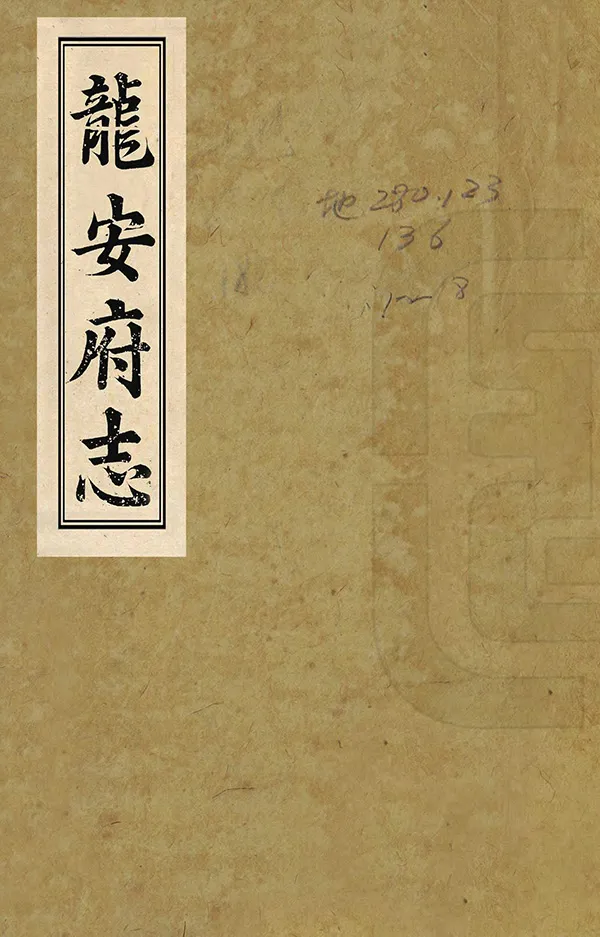 龍安府志
地280.123
136
1~18
18